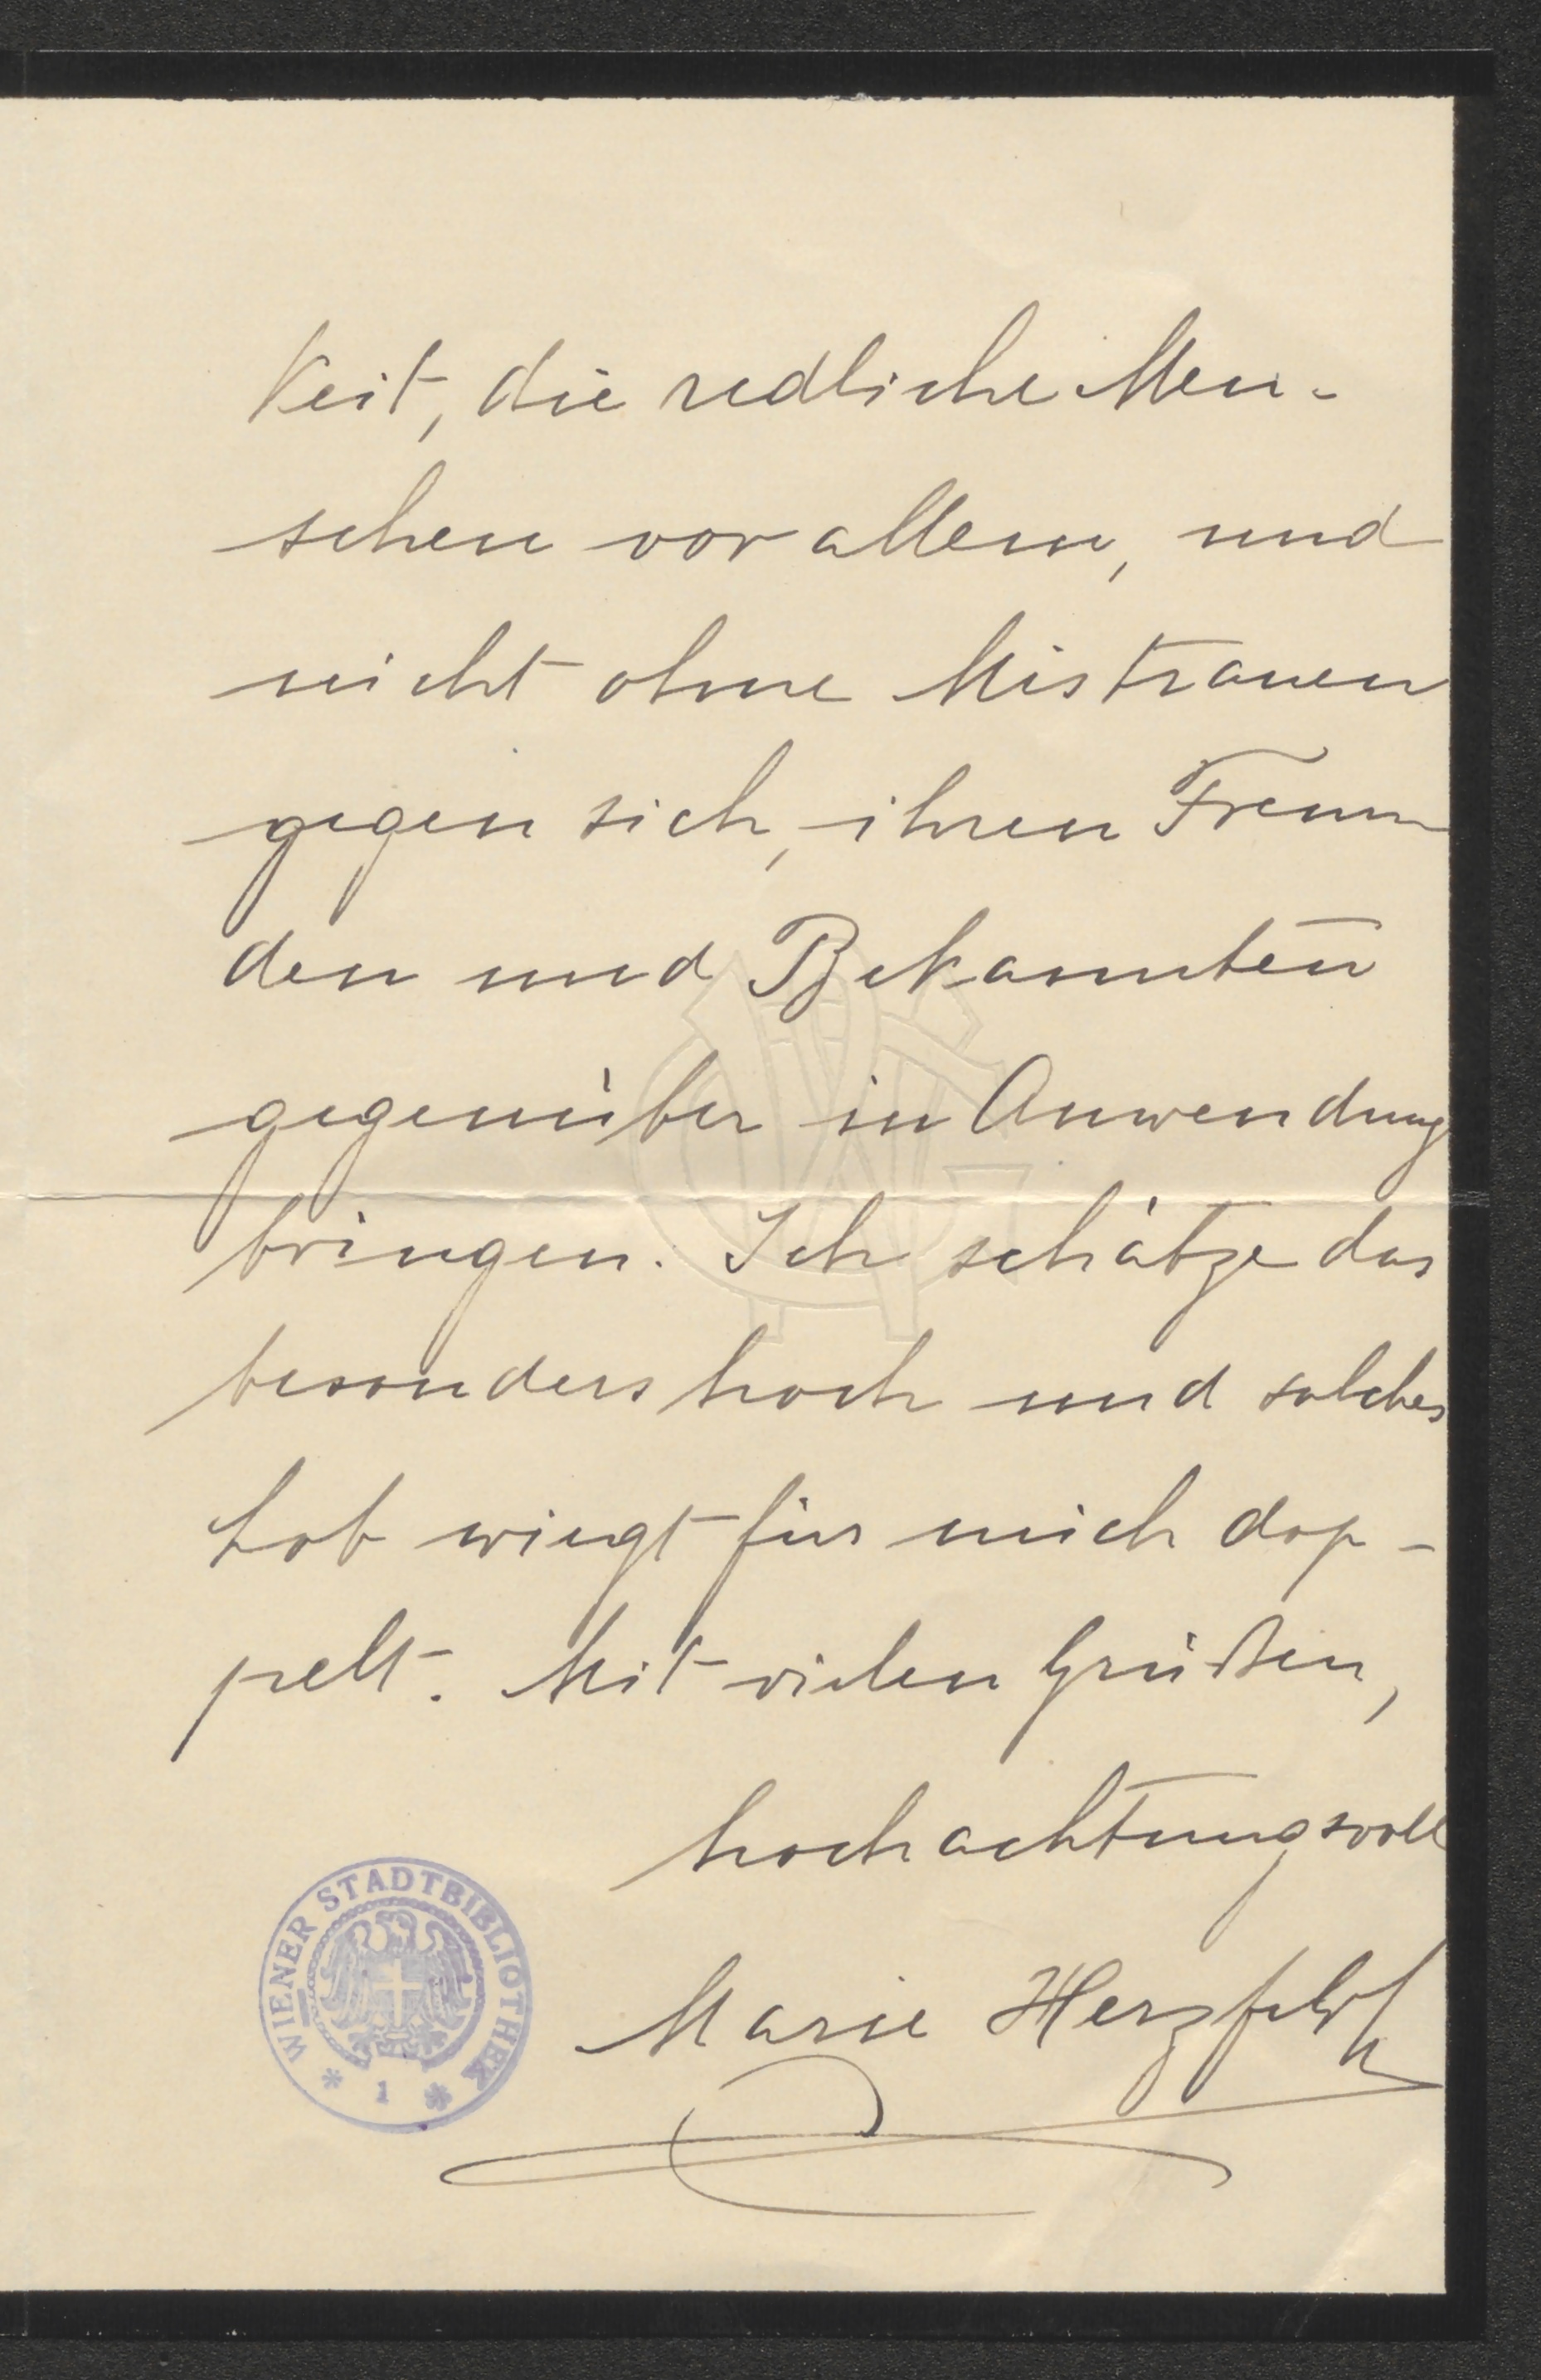 keit, die redliche Men-
schen vor allem, und
nicht ohne Mistrauen
gegen sich, ihren Freun
den und Bekannten
gegenüber in Anwendung
bringen. Ich schätze das
besonders hoch und solches
Lob wiegt für mich dop-
pelt. Mit vielen Grüßen,
hochachtungsvoll
Marie Herzfeld
WIENER STADTBIBLIOTHEK
* 1 *